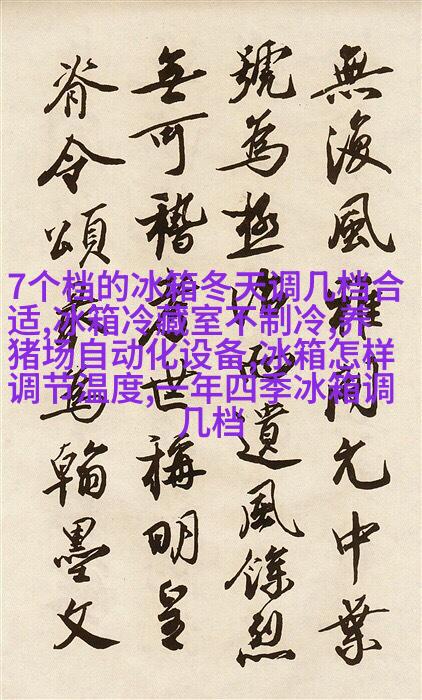 無復風雅開元中葉
號為極盛遺風餘烈
無可稽考世稱明皇
脊令頌為翰墨文
7个档的冰箱冬天调几档合
适,冰箱冷藏室不制冷,养
猪场自动化设备,冰箱怎样
调节温度,一年四季冰箱调
几档